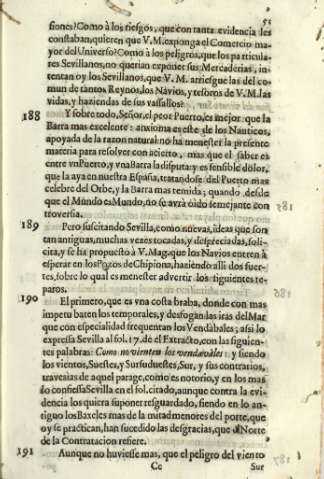 52
siones? Como à los riesgos, que con tanta evidencia les
constaban, quieren que V. M. exponga el Comercio ma-
yor del Universo? Como à los peligros, que los particula-
res Sevillanos, no querian exponer sus Mercaderias, in-
tentan oy los Sevillanos, que V. M. arriesgue las del co-
mun de tantos Reynos, los Navios, y tesoros de V. M. las
vidas, y haziendas de sus vassallos?
188 Y sobre todo, Señor, el peor Puerto, es mejor que la
Barra mas excelente: anxioma es este de los Nauticos,
apoyada de la razon natural no ha menester la presente
materia para resolver con acierto, mas que el saber es
entre vn Puerto, y vna Barra la disputa: y es sensible dolor,
que la aya en nuestra España, tratandose del Puerto mas
celebre del Orbe, y la Barra mas temida; quando desde
que el Mundo es Mundo, no se avrà oido semejante con
troversia.
189 Pero suscitando Sevilla, como nuevas, ideas que son
tan antiguas, muchas vezes tocadas, y despreciadas, soli-
cita, y se ha propuesto à V. Mag. que los Navios entren à
esperar en los Pozos de Chipiona, haziendo alli dos fuer-
tes, sobre lo qual es menester advertir los siguientes re-
paros.
190 El primero, que es vna costa braba, donde con mas
impetu baten los temporales, y desfogan las iras del Mar
que con especialidad frequentan los Vendabales; assi lo
expressa Sevilla al fol. 17. de el Extracto, con las siguien-
tes palabras: Como no vienten los vendavales: y siendo
los vientos, Suestes, y Sursuduestes, Sur, y sus contrarios,
travesias de aquel parage, como es notorio, y en los mas
lo confiessa Sevilla en el fol. citado, aunque contra la evi-
dencia los quiera suponer resguardado, siendo en lo an-
tiguo los Baxeles mas de la mitad menores del porte, que
oy se practican, han sucedido las desgracias, que el Norte
de la Contratacion refiere.
191 Aunque no huviesse mas, que el peligro del viento
Cc Sur